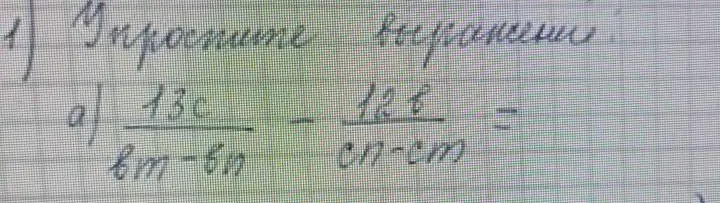 1) Упростите выражение:
а) 13c/вm-вn - 12в/cn-cm =